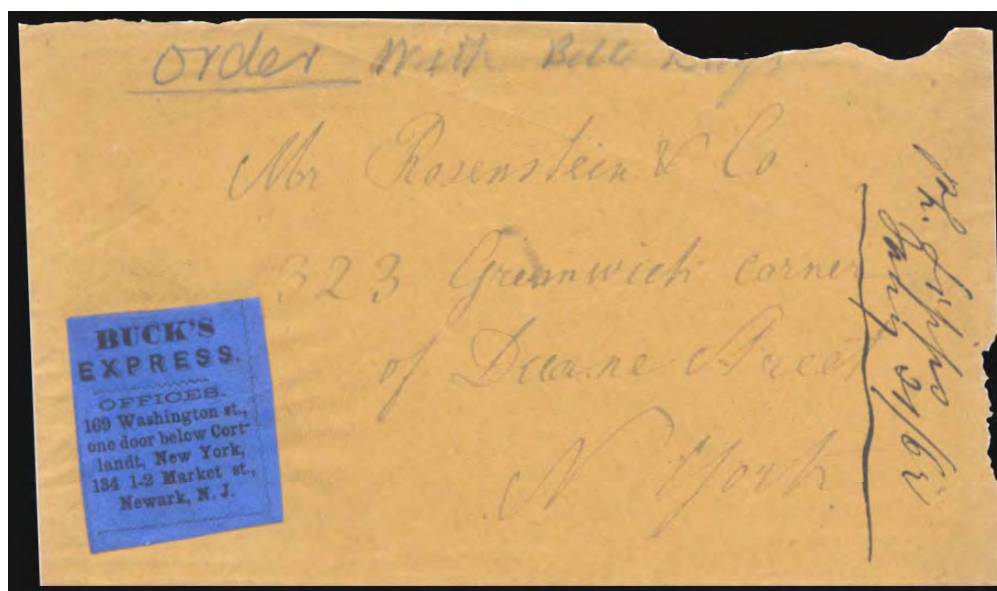 order With Belle
Mr Rosenstein & Co.
323 Greenwich corner
of Duane Street
N York
BUCK'S
EXPRESS.
OFFICES.
169 Washington st.,
one door below Cort-
landt, New York,
134 1-2 Market st.,
Newark, N. J.
July 21/62